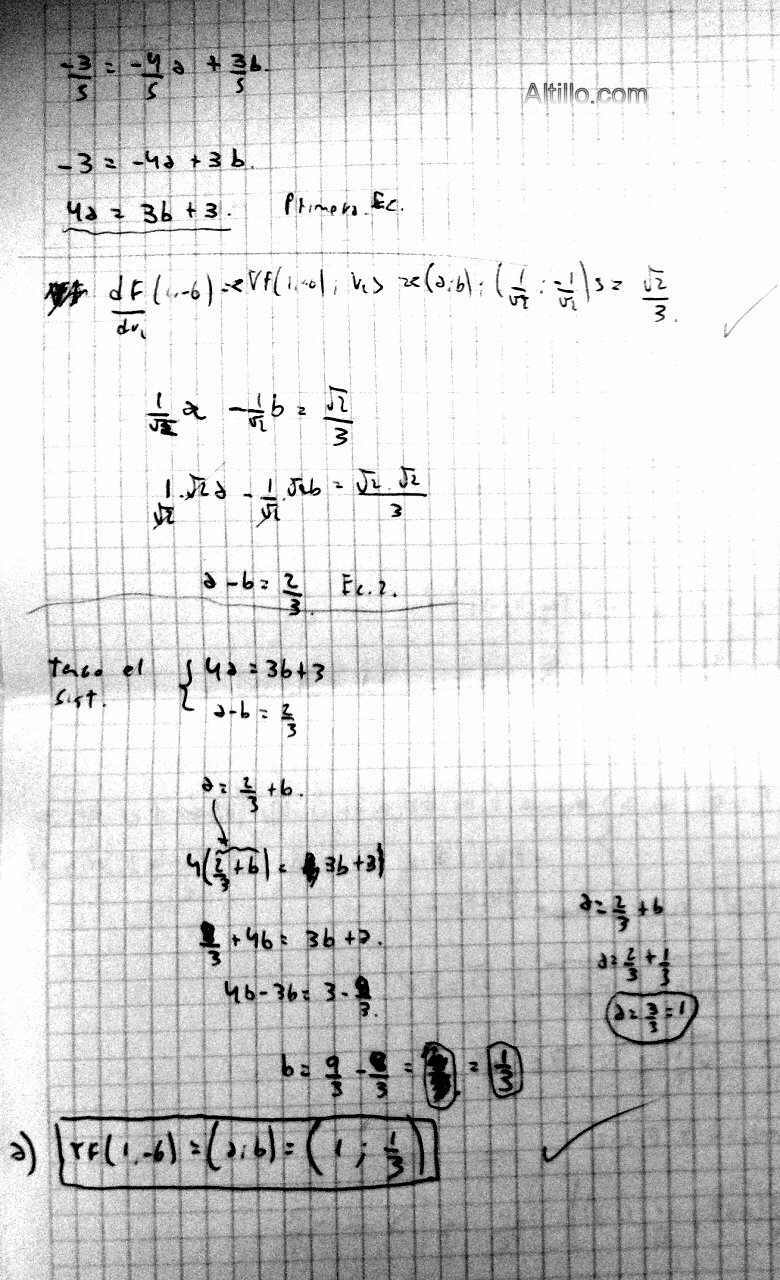 -3/5 = -4/5 a + 3b/5.
Altillo.com
-3 = -4a + 3b.
4a = 3b + 3. Primera Ec.
dF/dv₂ (1,-6) = <∇f(1,-6); v₂> = <(a;b); (1/√2; -1/√2)> = √2/3.
1/√2 a - 1/√2 b = √2/3
1/√2 · √2 a - 1/√2 · √2 b = √2 · √2/3
a - b = 2/3. Ec. 2.
Tengo el sist. { 4a = 3b + 3
a - b = 2/3
a = 2/3 + b.
4(2/3 + b) = 3b + 3
8/3 + 4b = 3b + 3.
4b - 3b = 3 - 8/3.
b = 9/3 - 8/3 = = 1/3
a = 2/3 + b
a = 2/3 + 1/3
a = 3/3 = 1
a) ∇F(1,-6) = (a;b) = (1; 1/3)